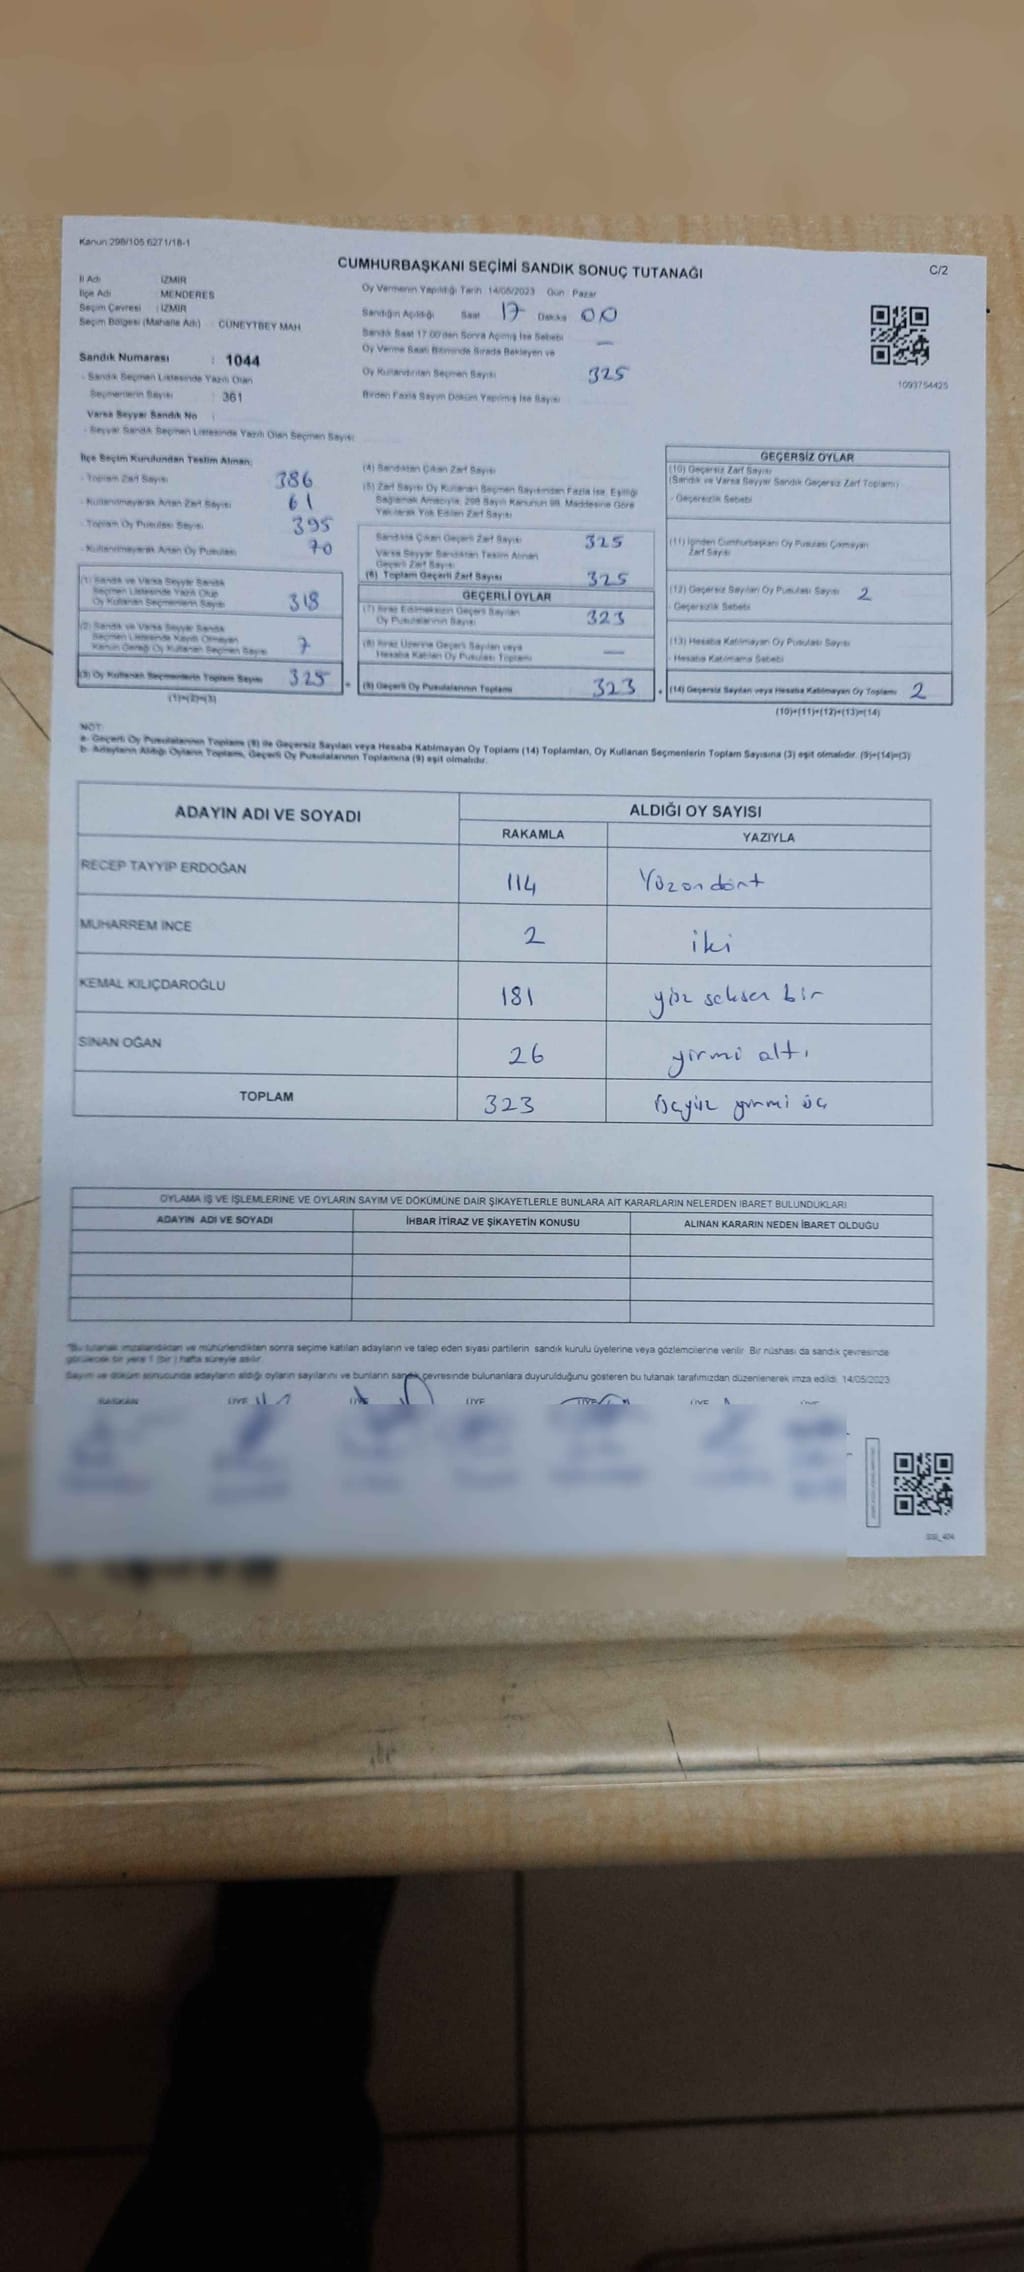 Kanun:298/105 6271/18-1
CUMHURBAŞKANI SEÇİMİ SANDIK SONUÇ TUTANAĞI
C/2
İl Adı : İZMİR
İlçe Adı : MENDERES
Seçim Çevresi : İZMİR
Seçim Bölgesi (Mahalle Adı) : CÜNEYTBEY MAH
Sandık Numarası : 1044
- Sandık Seçmen Listesinde Yazılı Olan
Seçmenlerin Sayısı : 361
Varsa Seyyar Sandık No :
- Seyyar Sandık Seçmen Listesinde Yazılı Olan Seçmen Sayısı:
Oy Vermenin Yapıldığı Tarih : 14/05/2023 Gün : Pazar
Sandığın Açıldığı Saat 17 Dakika 00
Sandık Saat 17:00'den Sonra Açılmış İse Sebebi —
Oy Verme Saati Bitiminde Sırada Bekleyen ve
Oy Kullandırılan Seçmen Sayısı 325
Birden Fazla Sayım Döküm Yapılmış İse Sayısı
1093754425
İlçe Seçim Kurulundan Teslim Alınan;
- Toplam Zarf Sayısı 386
- Kullanılmayarak Artan Zarf Sayısı 61
- Toplam Oy Pusulası Sayısı 395
- Kullanılmayarak Artan Oy Pusulası 70
(1) Sandık ve Varsa Seyyar Sandık
Seçmen Listesinde Yazılı Olup
Oy Kullanan Seçmenlerin Sayısı 318
(2) Sandık ve Varsa Seyyar Sandık
Seçmen Listesinde Kayıtlı Olmayan
Kanun Gereği Oy Kullanan Seçmen Sayısı 7
(3) Oy Kullanan Seçmenlerin Toplam Sayısı 325
(1)+(2)=(3)
(4) Sandıktan Çıkan Zarf Sayısı
(5) Zarf Sayısı Oy Kullanan Seçmen Sayısından Fazla İse, Eşitliği
Sağlamak Amacıyla, 298 Sayılı Kanunun 98. Maddesine Göre
Yakılarak Yok Edilen Zarf Sayısı
Sandıkta Çıkan Geçerli Zarf Sayısı 325
Varsa Seyyar Sandıktan Teslim Alınan
Geçerli Zarf Sayısı
(6) Toplam Geçerli Zarf Sayısı 325
GEÇERLİ OYLAR
(7) İtiraz Edilmeksizin Geçerli Sayılan
Oy Pusulalarının Sayısı 323
(8) İtiraz Üzerine Geçerli Sayılan veya
Hesaba Katılan Oy Pusulası Toplamı —
(9) Geçerli Oy Pusulalarının Toplamı 323
GEÇERSİZ OYLAR
(10) Geçersiz Zarf Sayısı
(Sandık ve Varsa Seyyar Sandık Geçersiz Zarf Toplamı)
- Geçersizlik Sebebi
(11) İçinden Cumhurbaşkanı Oy Pusulası Çıkmayan
Zarf Sayısı
(12) Geçersiz Sayılan Oy Pusulası Sayısı 2
- Geçersizlik Sebebi
(13) Hesaba Katılmayan Oy Pusulası Sayısı
- Hesaba Katılmama Sebebi
(14) Geçersiz Sayılan veya Hesaba Katılmayan Oy Toplamı 2
(10)+(11)+(12)+(13)=(14)
NOT:
a- Geçerli Oy Pusulalarının Toplamı (9) ile Geçersiz Sayılan veya Hesaba Katılmayan Oy Toplamı (14) Toplamları, Oy Kullanan Seçmenlerin Toplam Sayısına (3) eşit olmalıdır. (9)+(14)=(3)
b- Adayların Aldığı Oyların Toplamı, Geçerli Oy Pusulalarının Toplamına (9) eşit olmalıdır.
ADAYIN ADI VE SOYADI
ALDIĞI OY SAYISI
RAKAMLA YAZIYLA
RECEP TAYYİP ERDOĞAN 114 Yüzondört
MUHARREM İNCE 2 iki
KEMAL KILIÇDAROĞLU 181 yüz seksen bir
SİNAN OĞAN 26 yirmi altı
TOPLAM 323 üçyüz yirmi üç
OYLAMA İŞ VE İŞLEMLERİNE VE OYLARIN SAYIM VE DÖKÜMÜNE DAİR ŞİKAYETLERLE BUNLARA AİT KARARLARIN NELERDEN İBARET BULUNDUKLARI
ADAYIN ADI VE SOYADI İHBAR İTİRAZ VE ŞİKAYETİN KONUSU ALINAN KARARIN NEDEN İBARET OLDUĞU
*Bu tutanak imzalandıktan ve mühürlendikten sonra seçime katılan adayların ve talep eden siyasi partilerin sandık kurulu üyelerine veya gözlemcilerine verilir. Bir nüshası da sandık çevresinde
görülecek bir yere 1 (bir) hafta süreyle asılır.
Sayım ve döküm sonucunda adayların aldığı oyların sayılarını ve bunların sandık çevresinde bulunanlara duyurulduğunu gösteren bu tutanak tarafımızdan düzenlenerek imza edildi. 14/05/2023
BAŞKAN ÜYE ÜYE ÜYE ÜYE